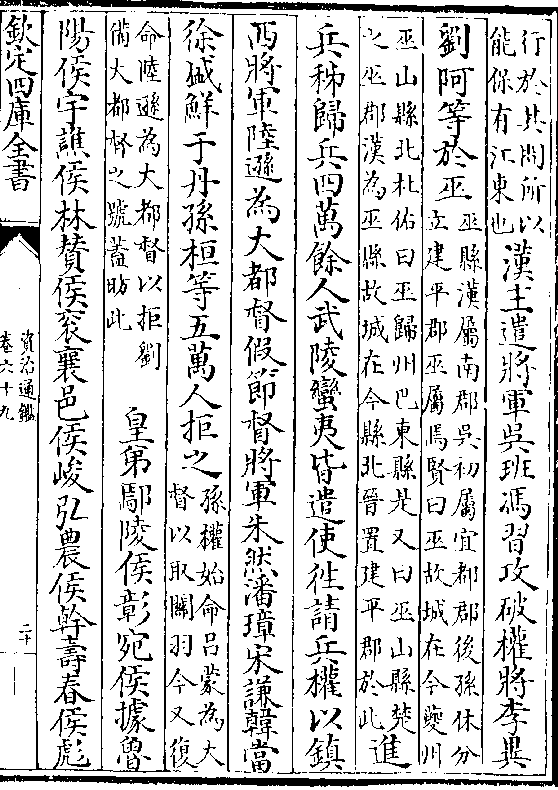 行於其間所以
能保有江東也
漢主遣將軍吳班馮習攻破權將李異
劉阿等於巫
巫縣漢屬南郡吳初屬宜都郡後孫休分
立建平郡巫屬焉賢曰巫故城在今夔州
巫山縣北杜佑曰巫歸州巴東縣是又曰巫山縣楚
之巫郡漢為巫縣故城在今縣北晉置建平郡於此
進
兵秭歸兵四萬餘人武陵蠻夷皆遣使徃請兵權以鎮
西將軍陸遜為大都督假節督將軍朱然潘璋宋謙韓當
徐盛鮮于丹孫桓等五萬人拒之
孫權始命呂蒙為大
督以取關羽今又復
命陸遜為大都督以拒劉
備大都督之號蓋昉此
皇弟鄢陵侯彰宛侯據魯
陽侯宇譙侯林賛侯衮襄邑侯峻弘農侯幹壽春侯彪
欽定四庫全書
資治通鑑
卷六十九
二十